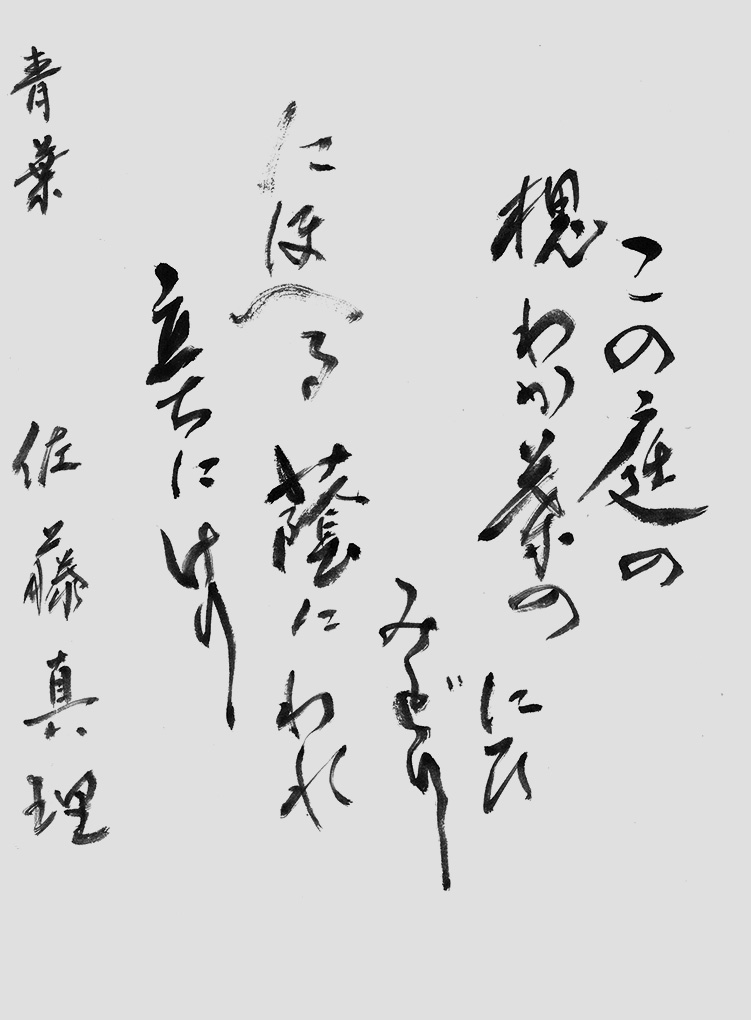 この庭の
槐わか葉の
にひ
みどり
にほへる蔭にわれ
立ちにけり
青葉 佐藤真理